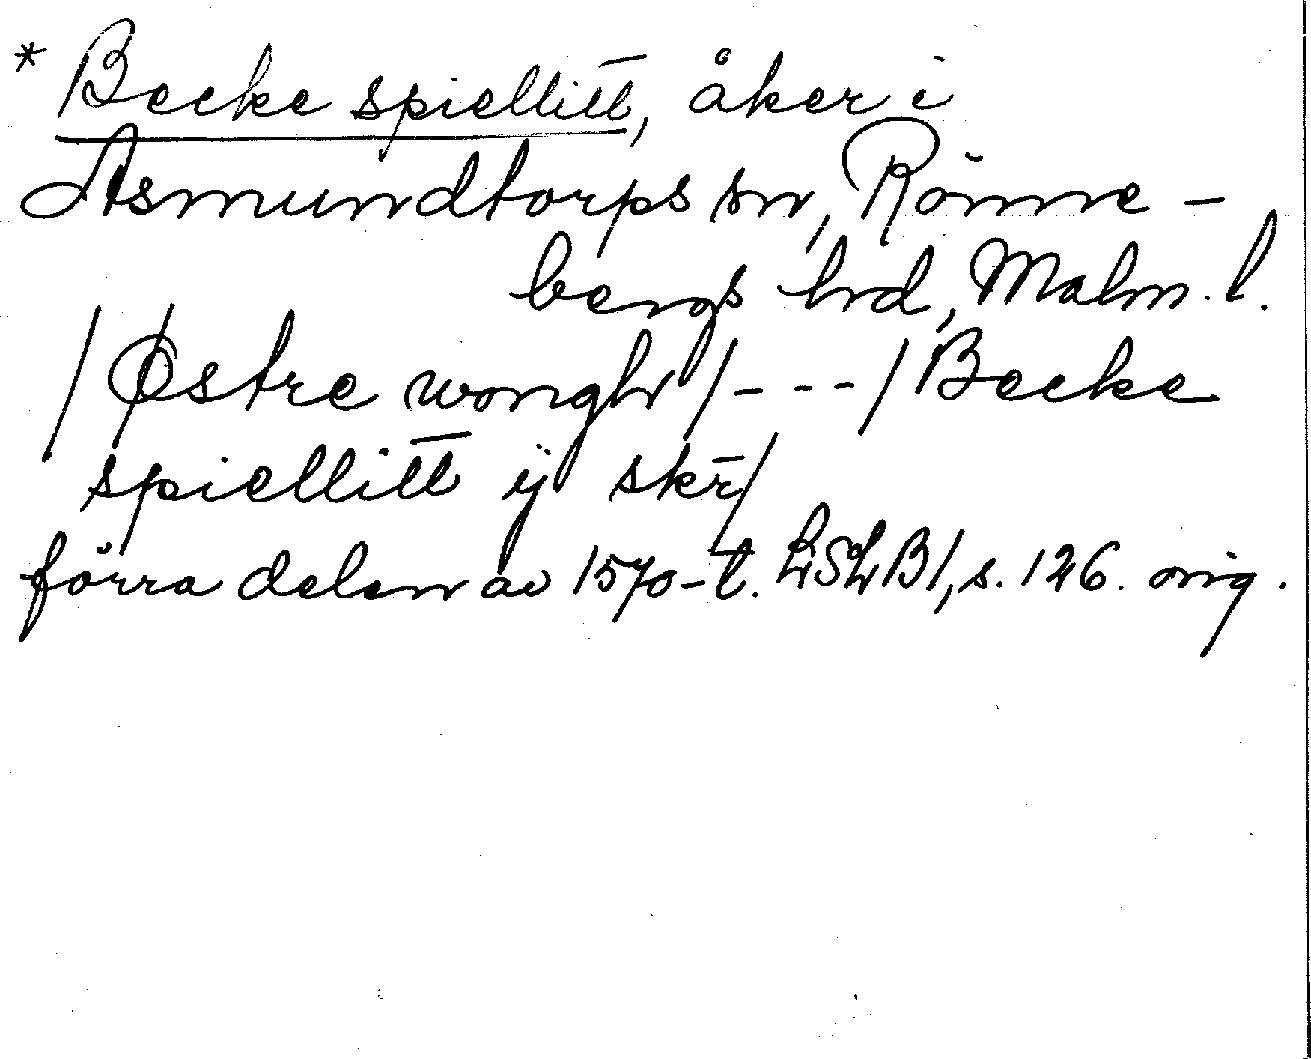 * Becke spiellitt̅, åker i
Asmundtorps sn, Rönne-
bergs hrd, Malm. l.
/Østre wongh/---/Becke
spiellitt̅ ij skr̅/
förra delen av 1570-t. LSLB1, s. 126. orig.